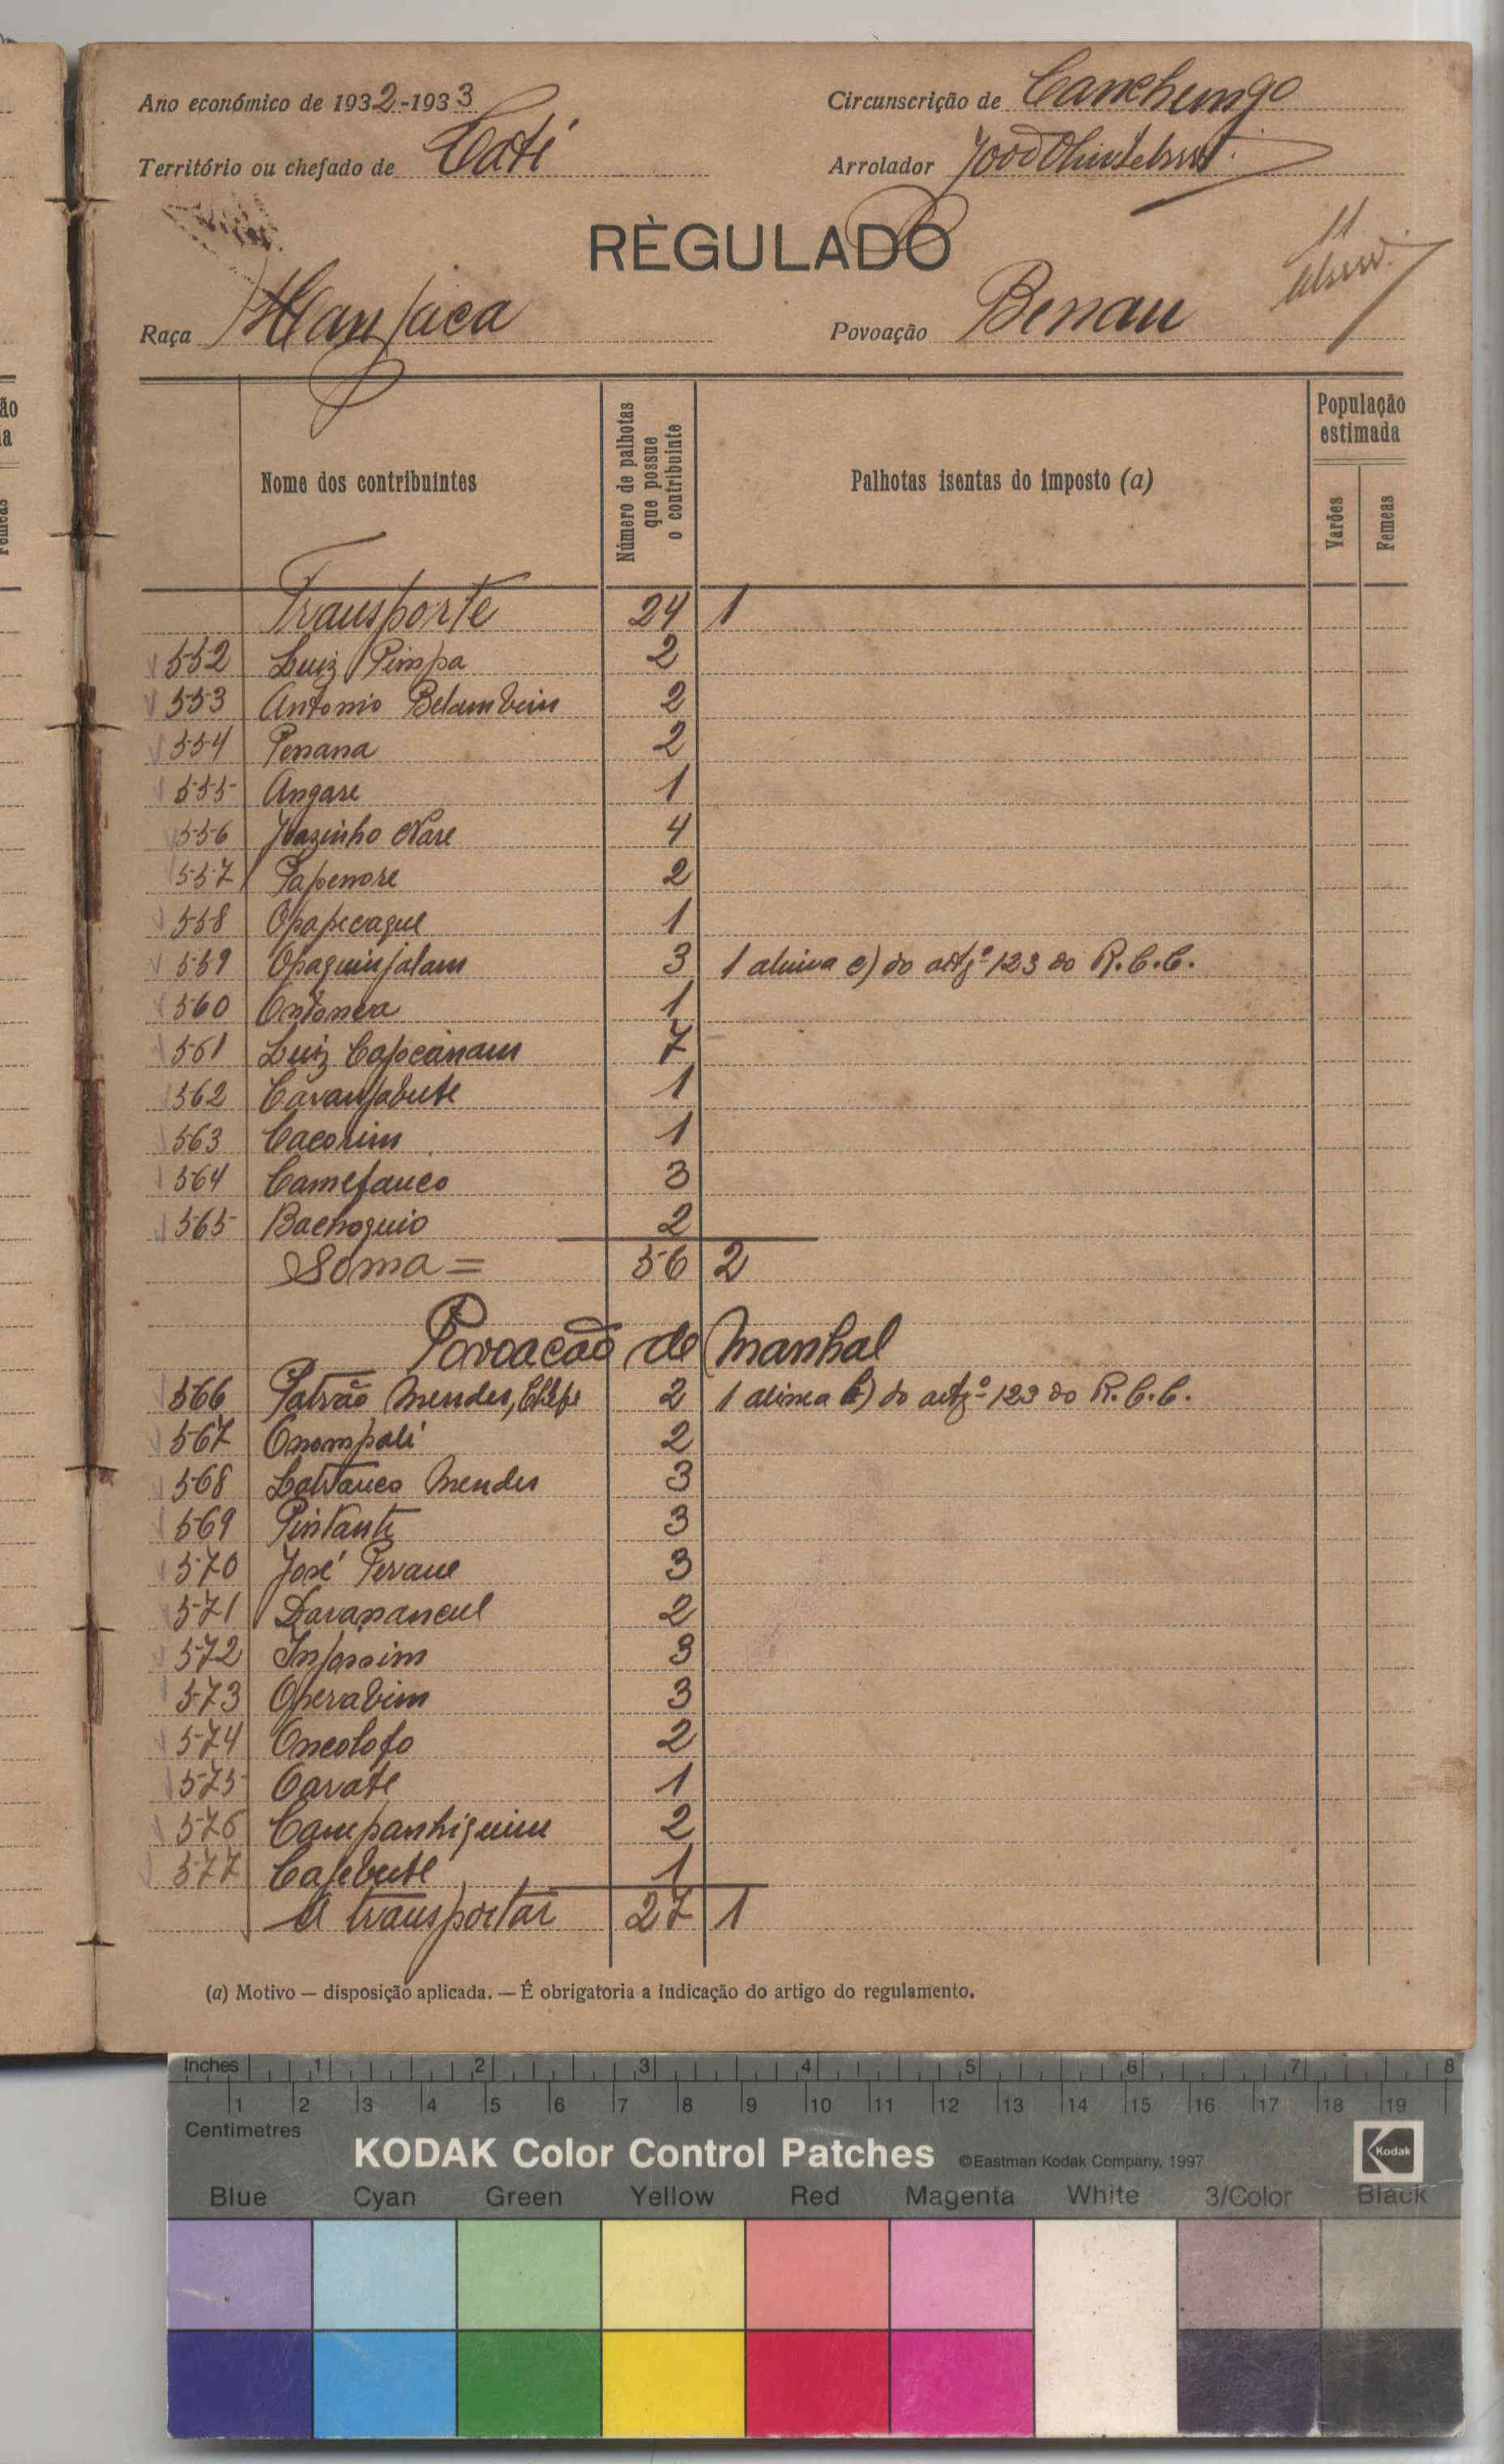 Ano económico de 1932-1933 Circunscrição de Canchungo
Território ou chefado de Cati Arrolador
RÈGULADO
Raça Manjaca Povoação Benau
Nome dos contribuintes
Número de palhotas que possue o contribuinte
Palhotas isentas do imposto (a)
População estimada
Varões
Femeas
Transporte 24 1
552 Luiz Pimpa 2
553 Antonio Belambim 2
554 Penana 2
555 Angare 1
556 Joazinho Nare 4
557 Papenore 2
558 Opapecaque 1
559 Opaquinjalam 3 1 alinea e) do artgº 123 do R.C.C.
560 Ontonca 1
561 Luiz Capecanam 7
562 Cavanjabute 1
563 Cacorim 1
564 Camefanco 3
565 Bachoquio 2
Soma = 56 2
Povoacão de Manhal
566 Patrão Mendes, Chefe 2 1 alinea b) do artgº 123 do R.C.C.
567 Onompali 2
568 Mendes 3
569 Pintanti 3
570 José Pervane 3
571 Davanancul 2
572 3
573 Operabim 3
574 Oncolofo 2
575 Cavate 1
576 Campanhiquim 2
577 Cajebute 1
A transportar 27 1
(a) Motivo — disposição aplicada. — É obrigatoria a indicação do artigo do regulamento.
Inches 1 2 3 4 5 6 7 8
1 2 3 4 5 6 7 8 9 10 11 12 13 14 15 16 17 18 19
Centimetres
KODAK Color Control Patches ©Eastman Kodak Company, 1997 Kodak
Blue Cyan Green Yellow Red Magenta White 3/Color Black